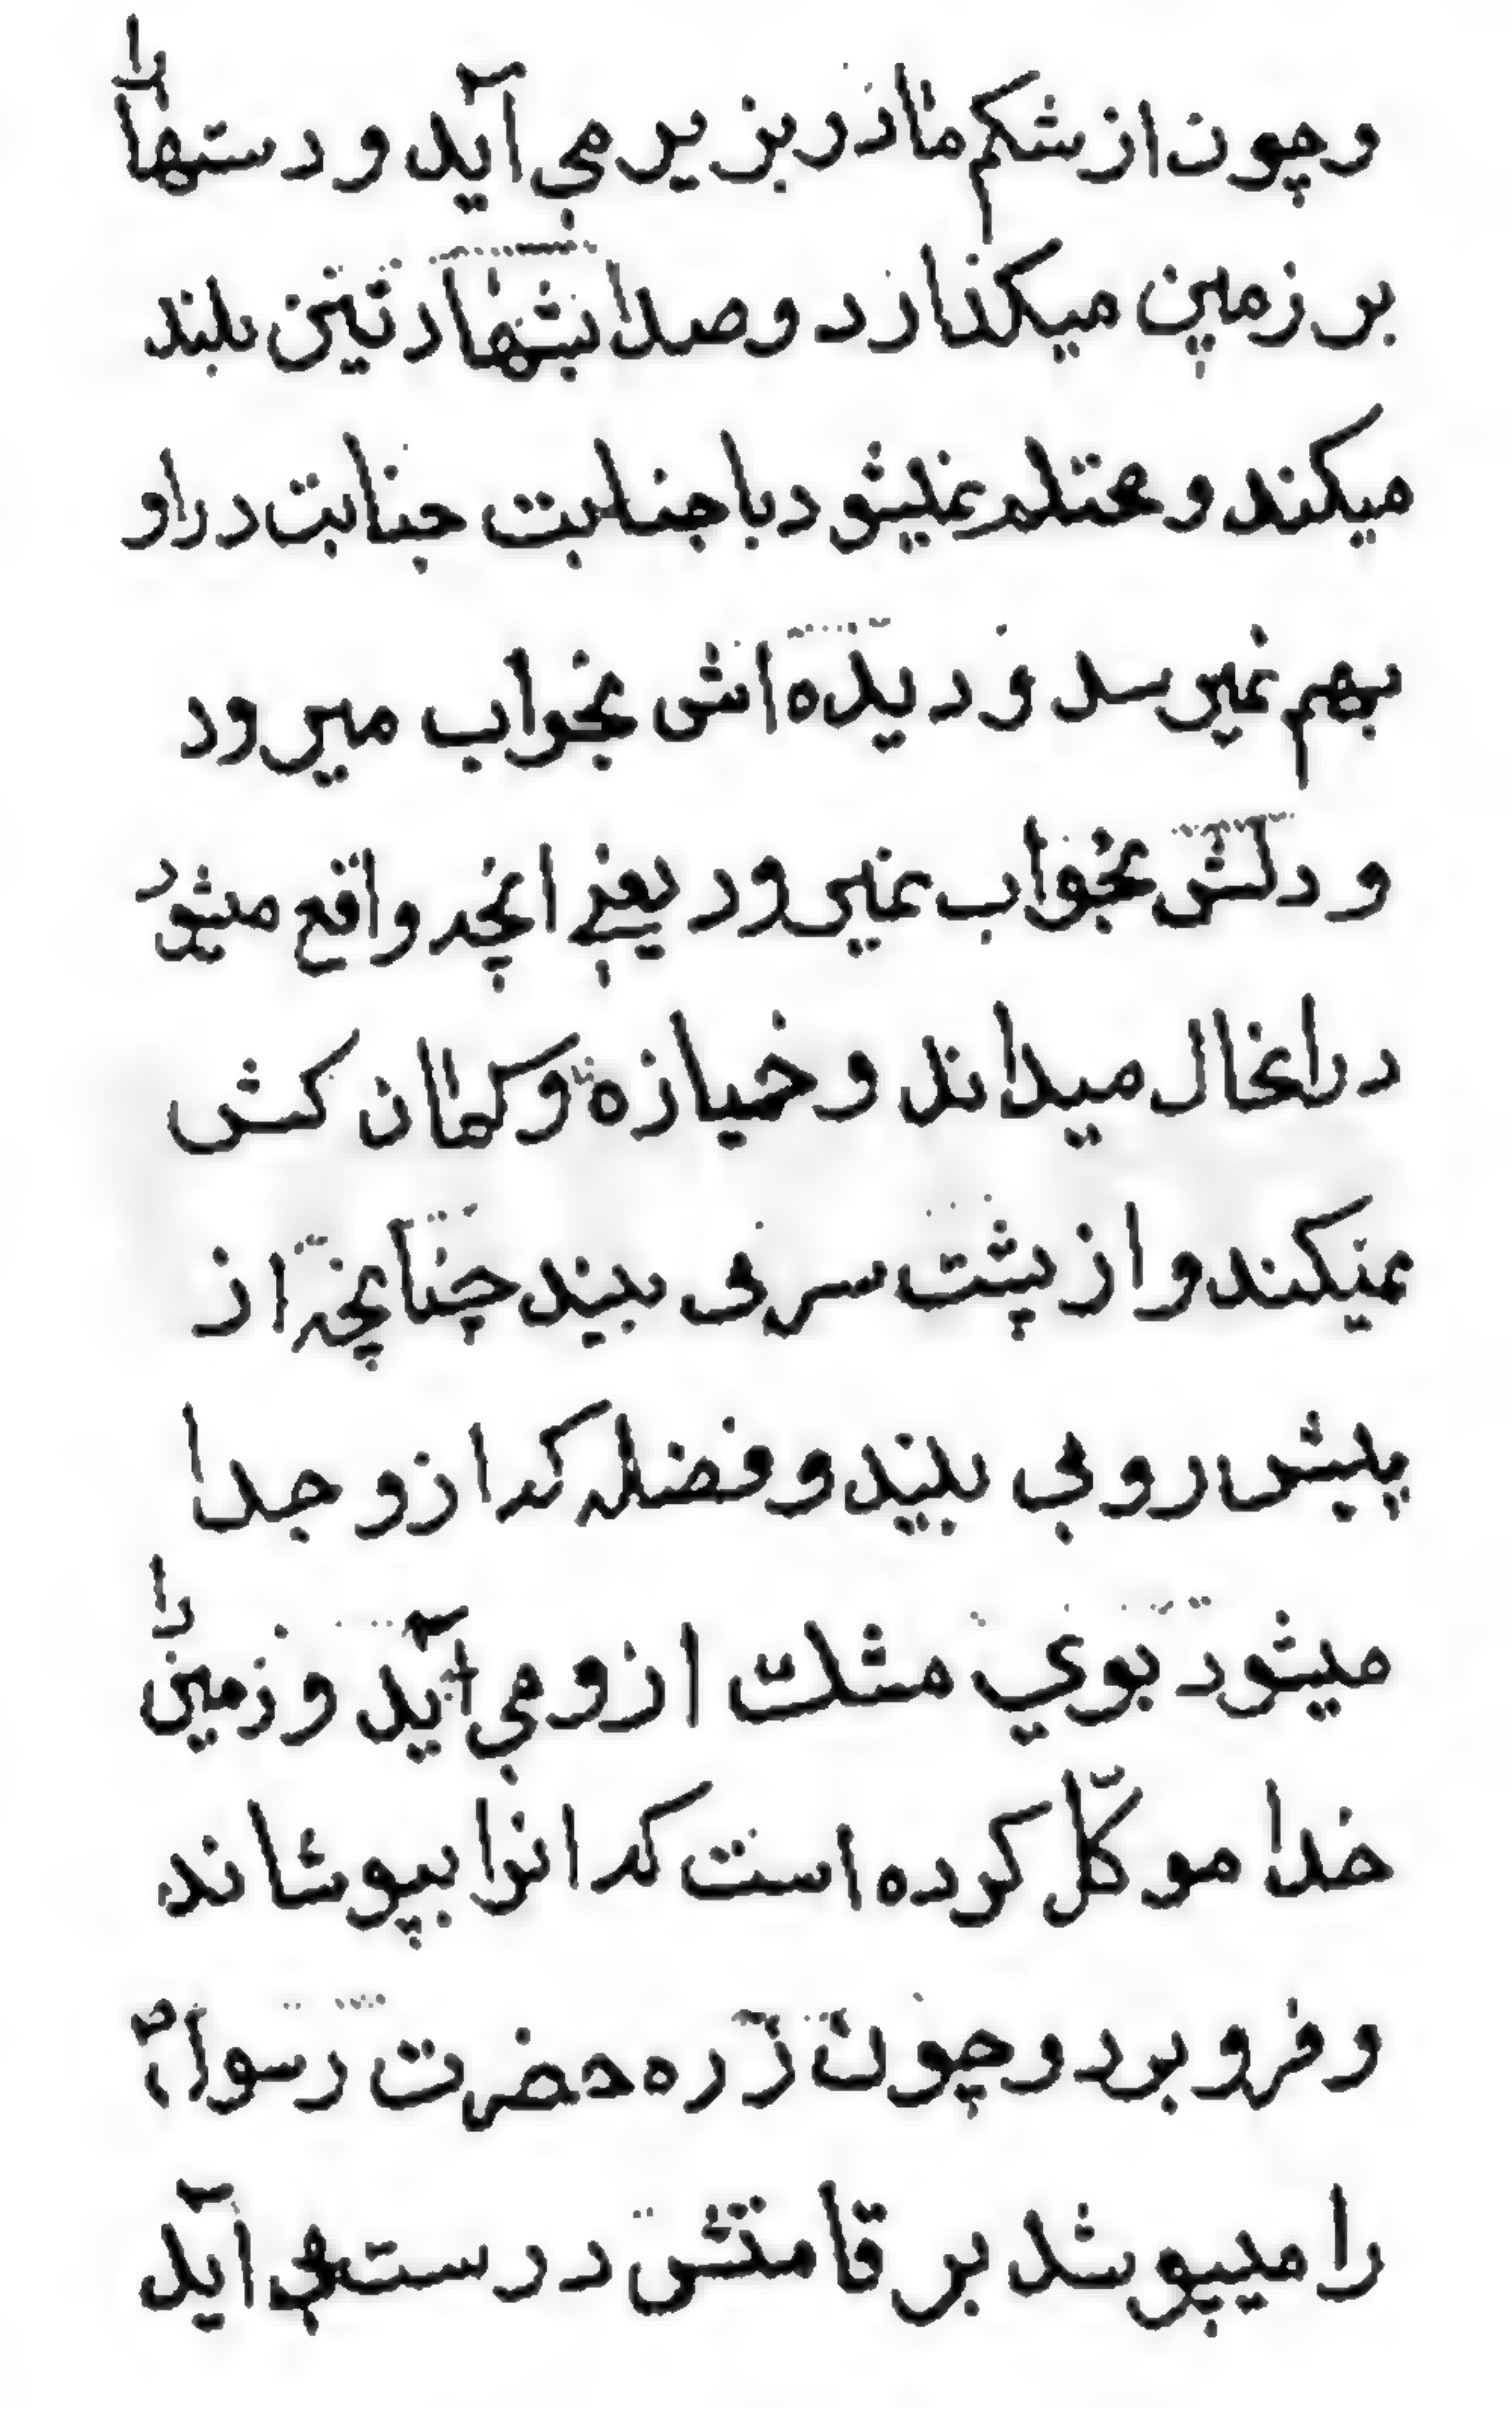 و چون از شکم مادر بزیر می آید و دستها را
بر زمین میکذارد و صدا بشهادتین بلند
میکند و محتلم نمیشود با جنابت جنابت در او
بهم نمیرسد و دیده اش بخواب میرود
و دلش بخواب نمیرود یعنے انچه واقع میشود
در انحال میداند و خمیازه و کمان کش
نمیکند و از پشت سر می بیند چنانچه از
پیش رو می بیند و فضله که ازو جدا
میشود بوی مشک ازو می آید و زمین را
خدا موکّل کرده است که انرا بپوشاند
و فرو برد و چون زره حضرت رسول ص
را میپوشد بر قامتش درست می آید